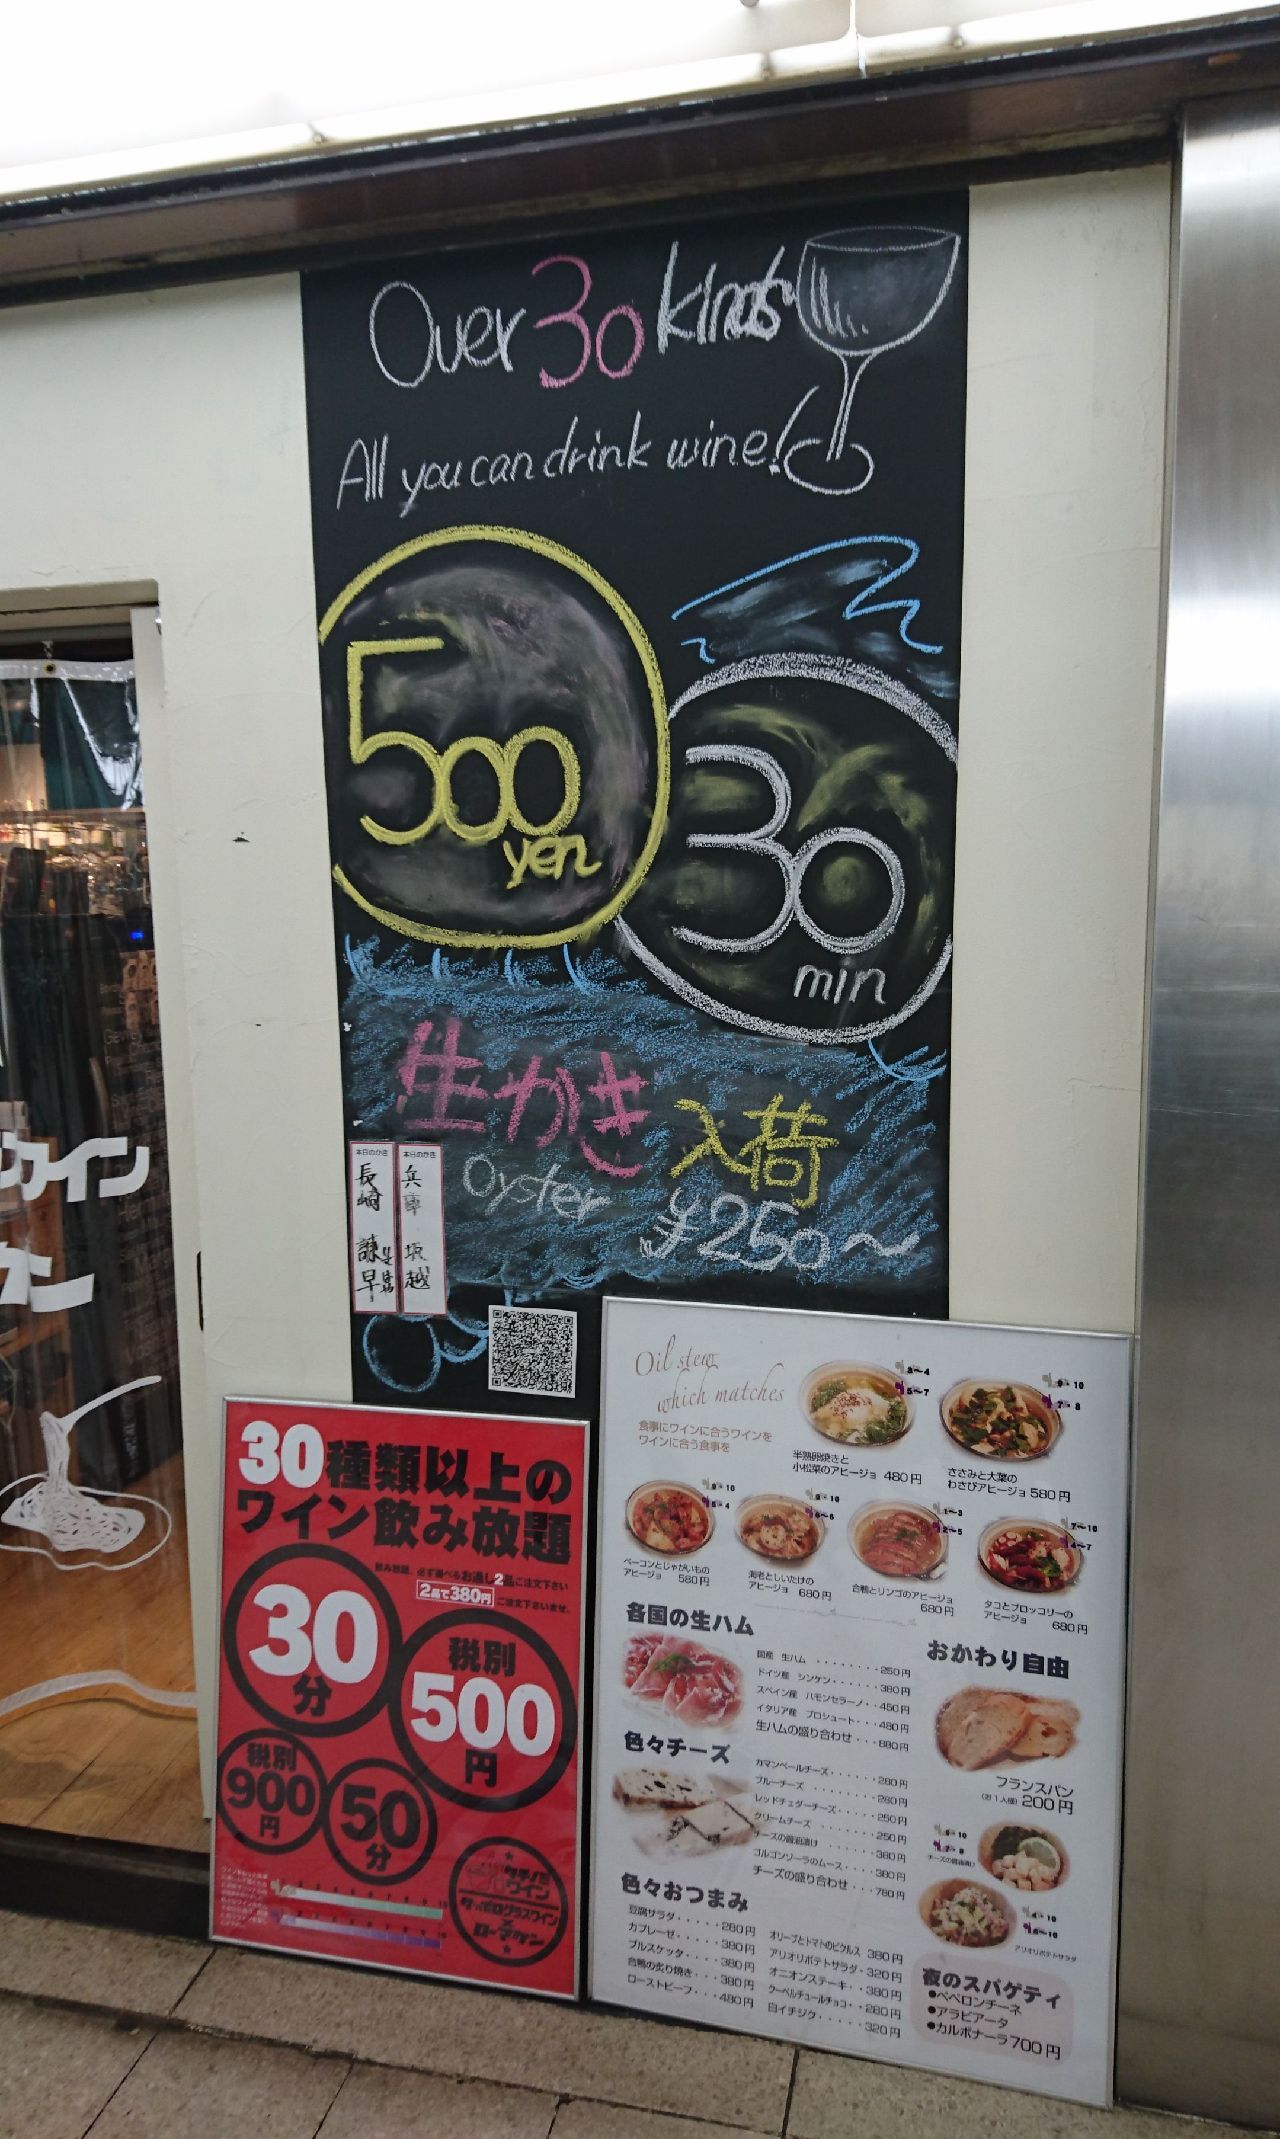 Over 30 kinds
All you can drink wine!
500
yen
30
min
生かき入荷
Oyster ¥250〜
本日のかき
長崎 諫早
本日のかき
兵庫 坂越
30種類以上の
ワイン飲み放題
必ず選べるお通し2品ご注文下さい
2品で380円
30
分
税別
500
円
税別
900
円
50
分
ワイン
Oil stew
which matches
食事にワインに合うワインを
ワインに合う食事を
半熟卵焼きと
小松菜のアヒージョ 480円
ささみと大葉の
わさびアヒージョ 580円
ベーコンとじゃがいもの
アヒージョ 580円
海老としいたけの
アヒージョ 680円
合鴨とリンゴのアヒージョ
680円
タコとブロッコリーの
アヒージョ 680円
各国の生ハム
国産 生ハム ........250円
ドイツ産 シンケン.....380円
スペイン産 ハモンセラーノ..450円
イタリア産 プロシュート...480円
生ハムの盛り合わせ...880円
おかわり自由
フランスパン
(お1人様) 200円
色々チーズ
カマンベールチーズ......280円
ブルーチーズ ........280円
レッドチェダーチーズ.....250円
クリームチーズ .......250円
チーズの醤油漬け ......380円
ゴルゴンゾーラのムース....380円
チーズの盛り合わせ...780円
チーズの醤油漬け
アリオリポテトサラダ
色々おつまみ
豆腐サラダ.....280円
カプレーゼ.....380円
ブルスケッタ....380円
合鴨の炙り焼き...380円
ローストビーフ...480円
オリーブとトマトのピクルス 380円
アリオリポテトサラダ・320円
オニオンステーキ..380円
クーベルチュールチョコ..280円
白イチジク.....320円
夜のスパゲティ
●ペペロンチーネ
●アラビアータ
●カルボナーラ700円